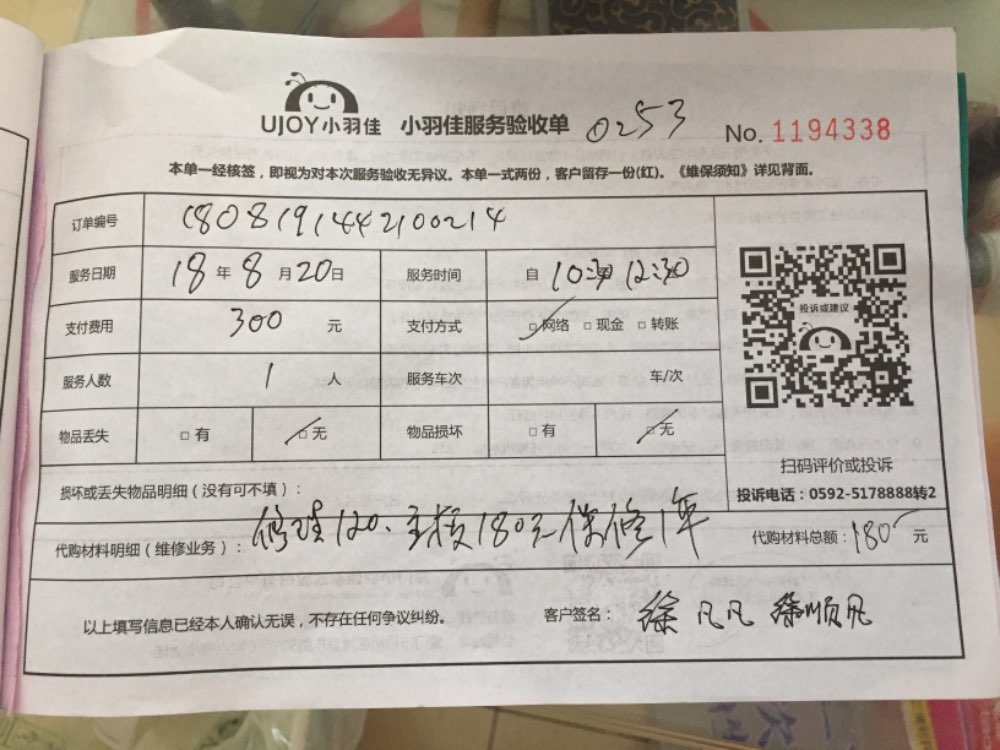 UJOY小羽佳 小羽佳服务验收单 0253 No. 1194338
本单一经核签，即视为对本次服务验收无异议。本单一式两份，客户留存一份(红)。《维保须知》详见背面。
订单编号 1808191442100214
服务日期 18 年 8 月 20 日 服务时间 自 10:30 12:30
支付费用 300 元 支付方式 ☑网络 □现金 □转账
服务人数 1 人 服务车次 车/次
物品丢失 □有 ☑无 物品损坏 □有 ☑无
投诉或建议
扫码评价或投诉
投诉电话：0592-5178888转2
损坏或丢失物品明细（没有可不填）：
代购材料明细（维修业务）： 修理120、主板180元保修1年 代购材料总额：180 元
以上填写信息已经本人确认无误，不存在任何争议纠纷。 客户签名： 徐凡凡 徐顺凡